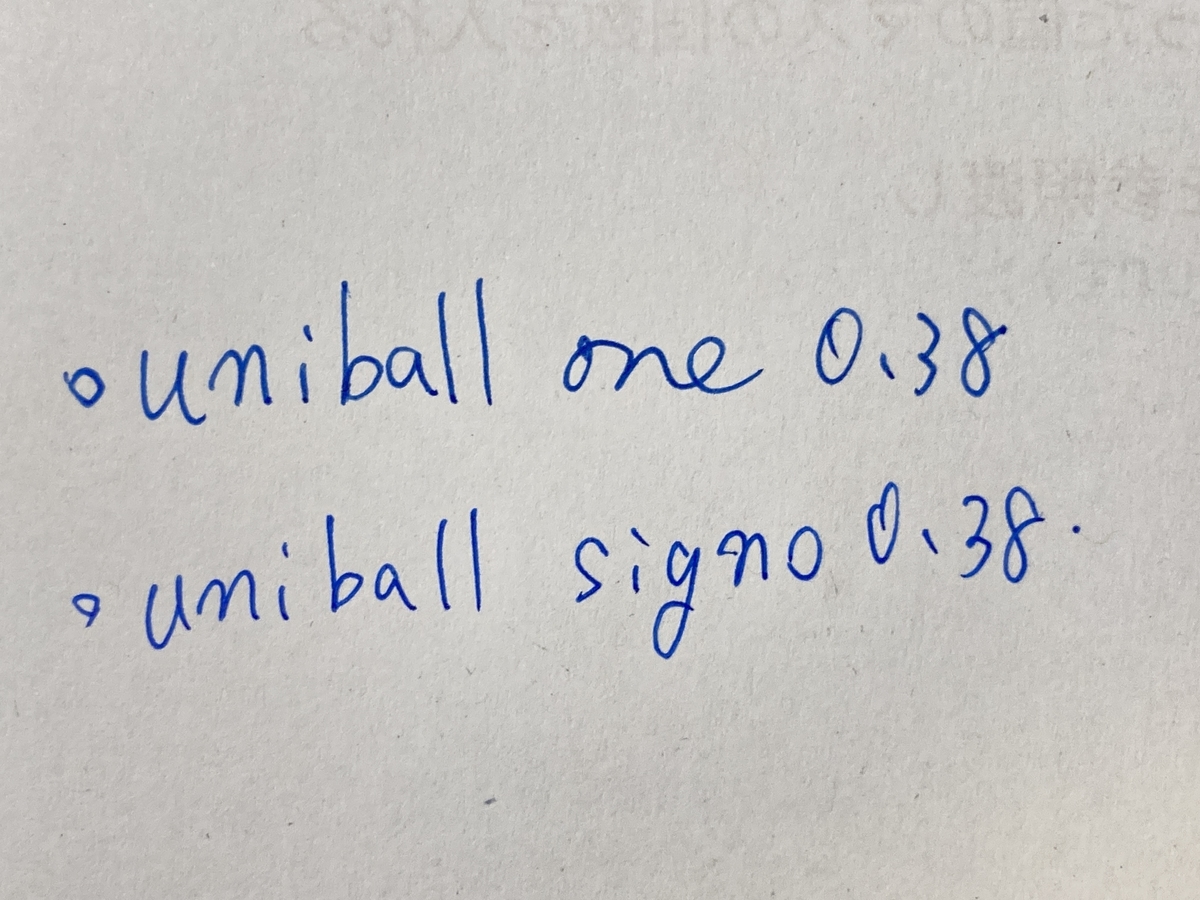 ◦ uniball one 0.38
◦ uniball signo 0.38.